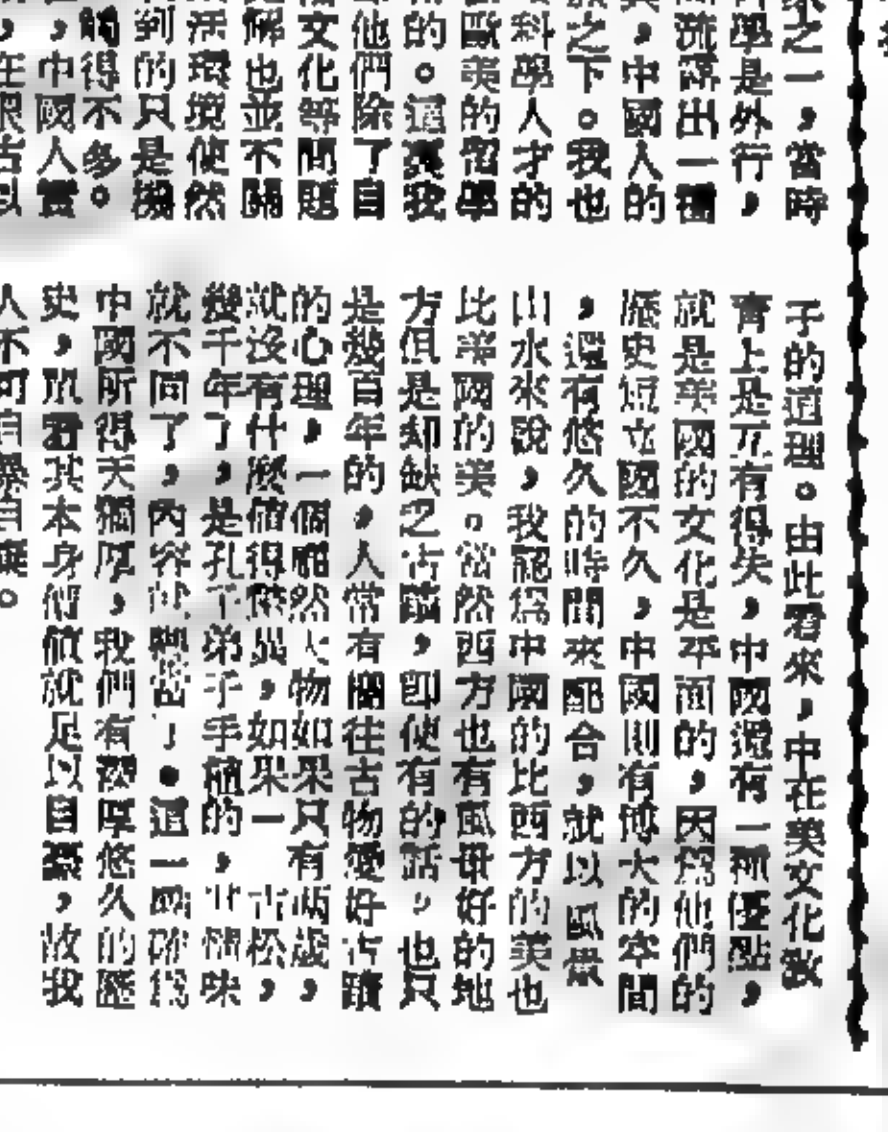 家之一，當時
學是外行，
流露出一種
，中國人的
之下。我也
科學人才的
歐美的留學
的。這眞我
他們除了自
文化等問題
解也並不關
活環境使然
到的只是機
觸得不多。
，中國人實
，在
子的道理。由此看來，中在美文化教
育上是互有得失，中國還有一種優點，
就是美國的文化是平面的，因爲他們的
歷史短立國不久，中國則有博大的空間
，還有悠久的時間來配合，就以風景
山水來說，我認爲中國的比西方的美也
比美國的美。當然西方也有風景好的地
方但是却缺乏古蹟，卽使有的話，也只
是幾百年的，人常有嚮往古物愛好古蹟
的心理，一個雖然人物如果只有兩歲，
就沒有什麼值得驚異，如果一 古松，
幾千年了，是孔子弟子手植的， 情味
就不同了，內容就豐富了。這一點確爲
中國所得天獨厚，我們有深厚悠久的歷
史，單看其本身價值就足以自豪，故我
人不可自暴自棄。